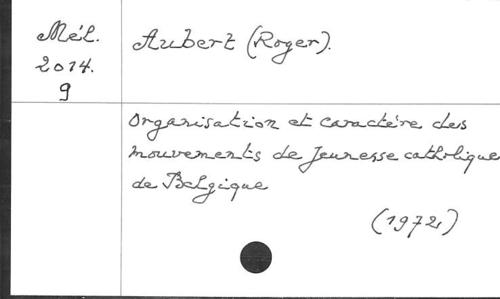 Mél.
2014.
9
Aubert (Roger).
Organisation et caractère des
mouvements de Jeunesse catholique
de Belgique
(1972)